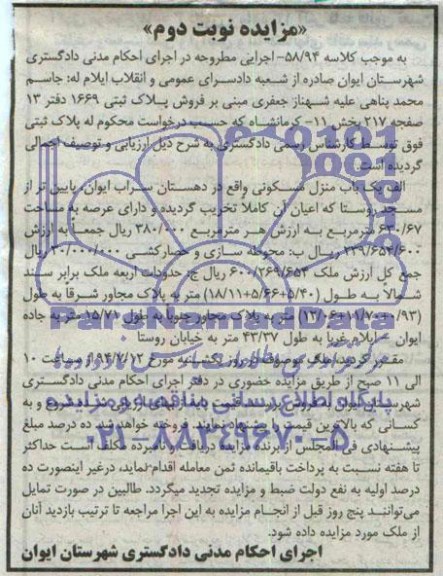 «مزایده نوبت دوم»
به موجب کلاسه ۵۸/۹۴- اجرایی مطروحه در اجرای احکام مدنی دادگستری
شهرستان ایوان صادره از شعبه دادسرای عمومی و انقلاب ایلام له: جاسم
محمد پناهی علیه شهناز جعفری مبنی بر فروش پلاک ثبتی ۱۶۶۹ دفتر ۱۳
صفحه ۲۱۷ بخش ۱۱- کرمانشاه که حسب درخواست محکوم له پلاک ثبتی
فوق توسط کارشناس رسمی دادگستری به شرح ذیل ارزیابی و توصیف اجمالی
گردیده است.
الف یک باب منزل مسکونی واقع در دهستان سراب ایوان، پایین تر از
مسجد روستا که اعیان آن کاملاً تخریب گردیده و دارای عرصه به مساحت
۶۳۰/۶۷ مترمربع به ارزش هر مترمربع ۳۸۰/۰۰۰ ریال جمعاً به ارزش
۲۳۹/۶۵۴/۶۰۰ ریال ب: محوطه سازی و حصارکشی ۳۰/۰۰۰/۰۰۰ ریال
جمع کل ارزش ملک ۲۶۹/۶۵۴/۶۰۰ ریال ج: حدودات اربعه ملک برابر سند
شمالا به طول (۵/۴۰+۵/۶۶+۱۸/۱۱) متر به پلاک مجاور شرقا به طول
(۰/۹۳+۱۱/۷۰+۱۳/۰۶) متر به پلاک مجاور جنوبا به طول ۱۵/۷۱ متر به جاده
ایوان – ایلام غربا به طول ۴۳/۳۷ متر به خیابان روستا
مقرر گردید ملک موصوف در روز یکشنبه مورخ ۹۴/۷/۱۲ از ساعت ۱۰
الی ۱۱ صبح از طریق مزایده حضوری در دفتر اجرای احکام مدنی دادگستری
شهرستان ایوان به فروش برسد. قیمت پایه از بهای ارزیابی شده شروع و به
کسانی که بالاترین قیمت را پیشنهاد نمایند. فروخته خواهد شد ده درصد مبلغ
پیشنهادی فی المجلس از برنده مزایده دریافت و نامبرده مکلف است حداکثر
تا هفته نسبت به پرداخت باقیمانده ثمن معامله اقدام نماید، درغیر اینصورت ده
درصد اولیه به نفع دولت ضبط و مزایده تجدید میگردد. طالبین در صورت تمایل
می‌توانند پنج روز قبل از انجام مزایده به این اجرا مراجعه تا ترتیب بازدید آنان
از ملک مورد مزایده داده شود.
اجرای احکام مدنی دادگستری شهرستان ایوان
ParsNamadData
پایگاه اطلاع رسانی مناقصه و مزایده
۰۲۱-۸۸۳۴۹۶۷۰-۵